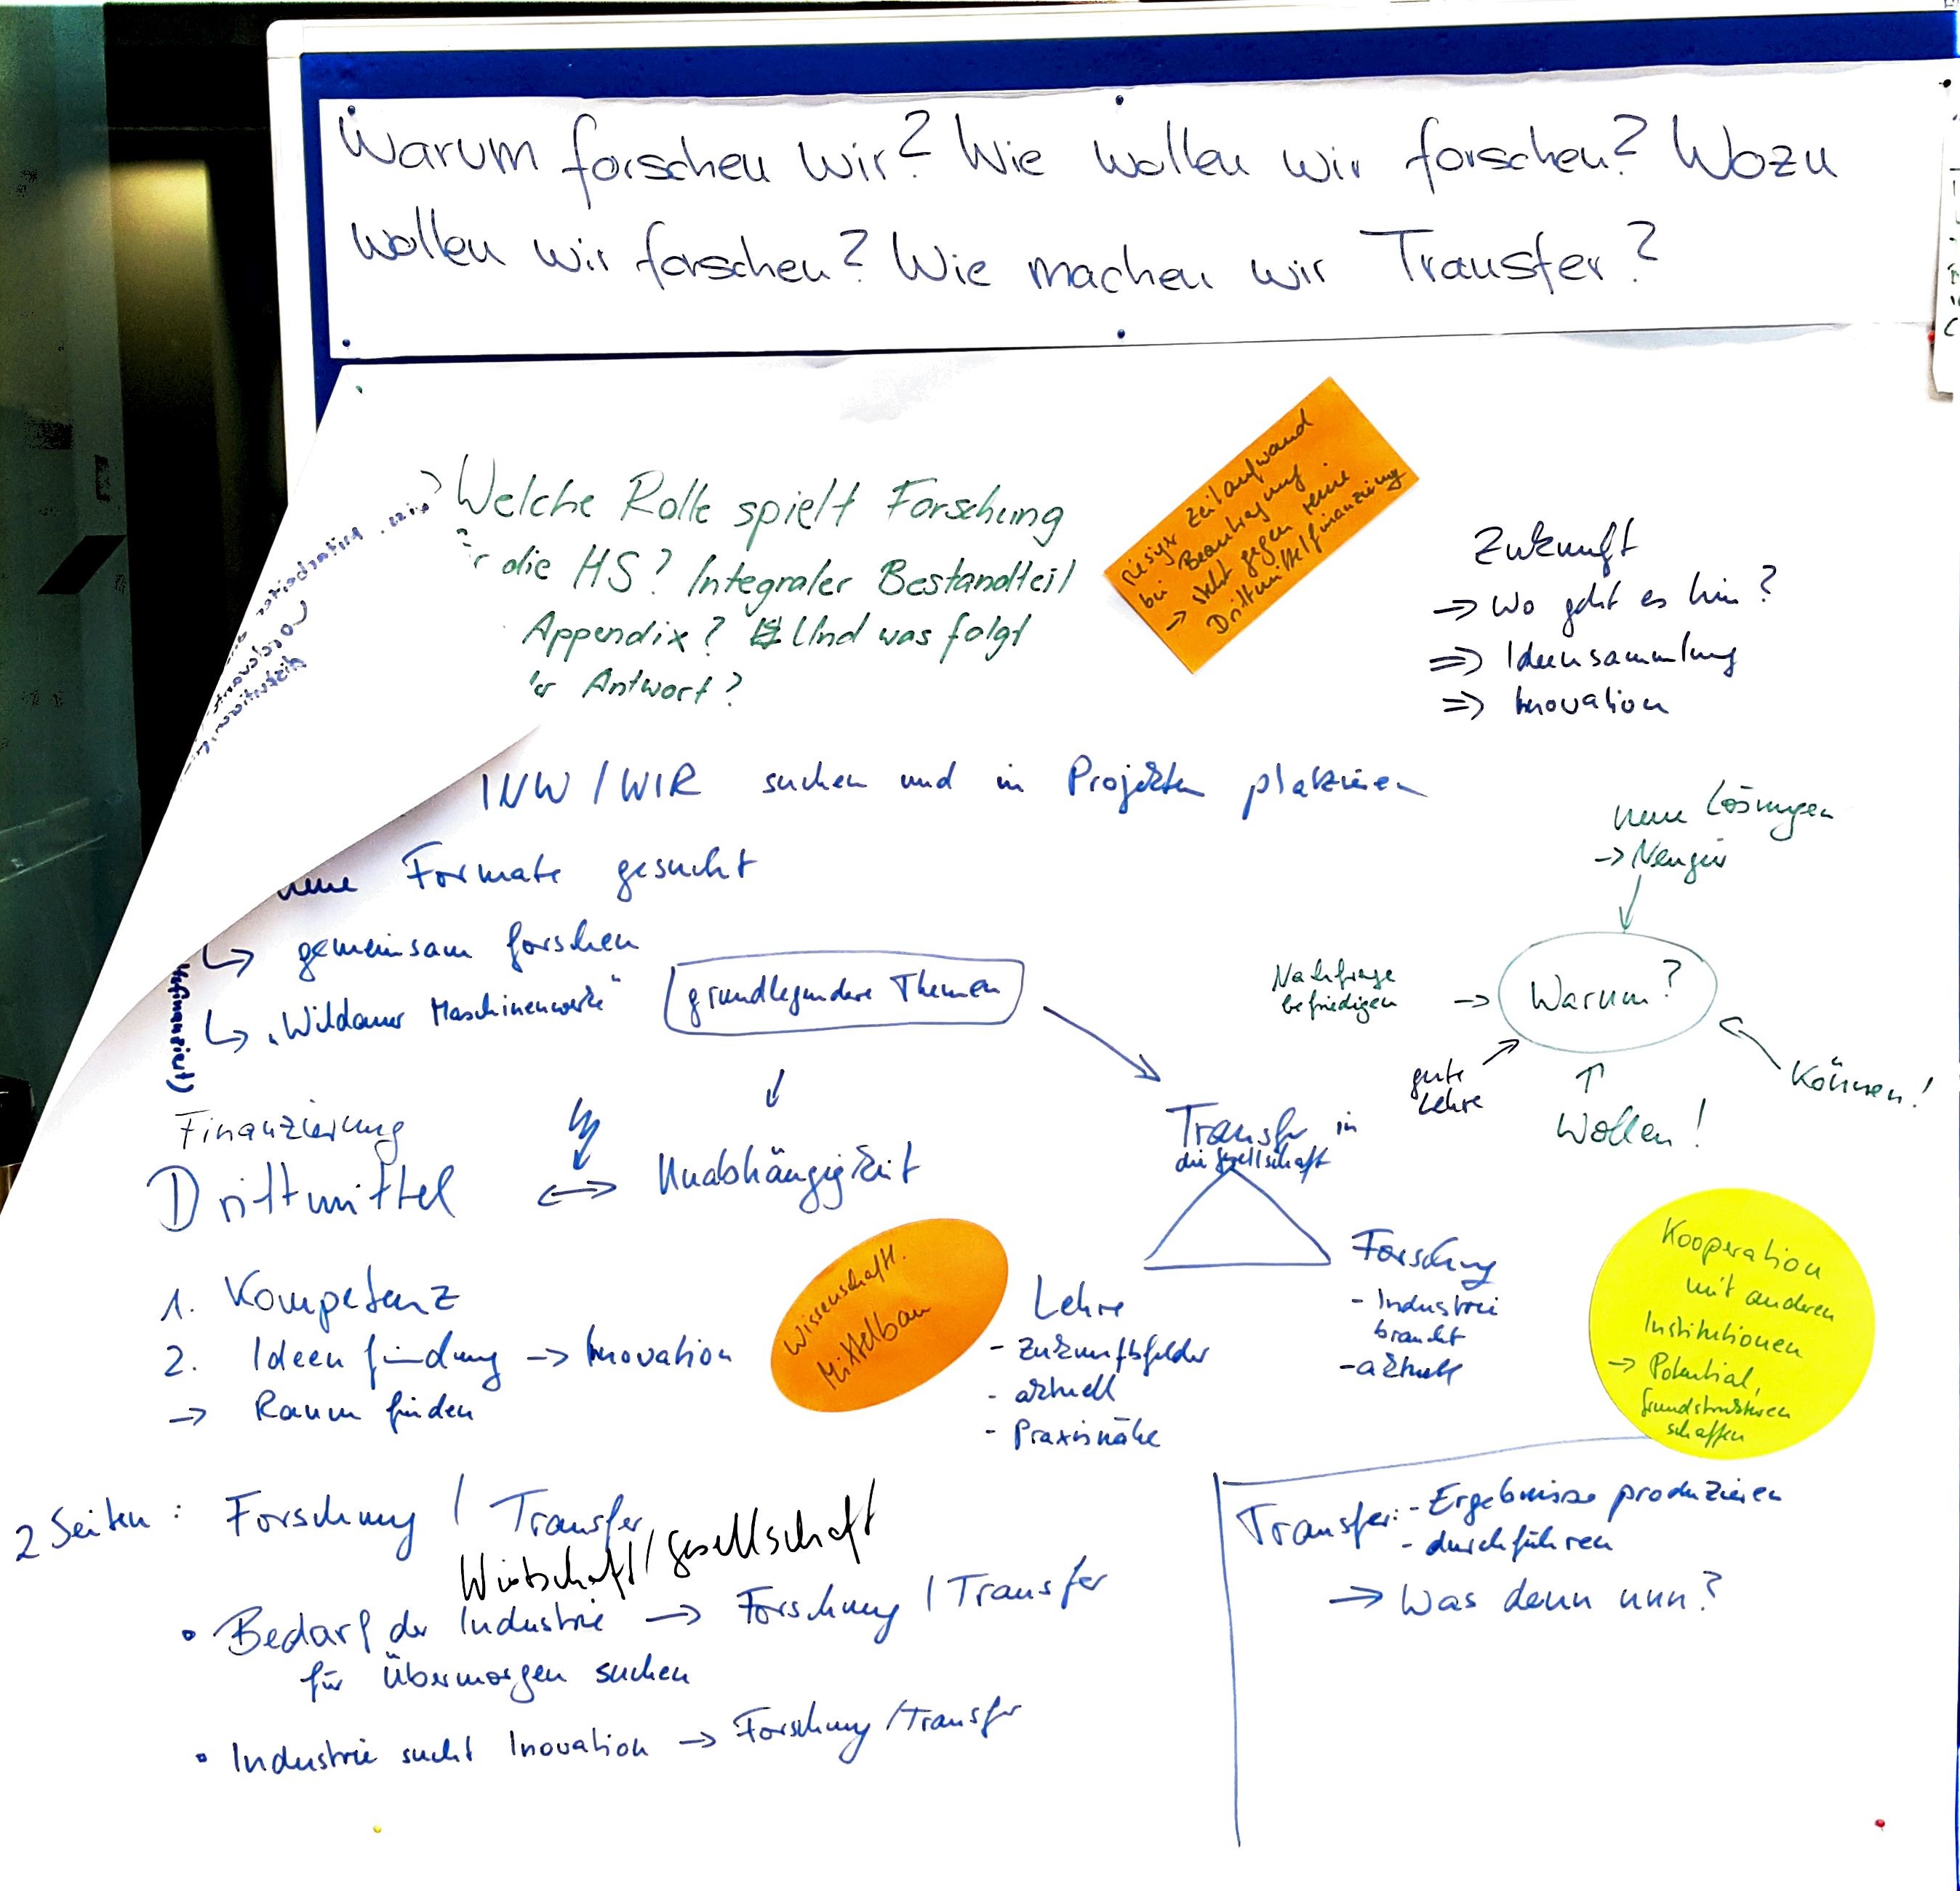 Warum forschen wir? Wie wollen wir forschen? Wozu
wollen wir forschen? Wie machen wir Transfer?
Welche Rolle spielt Forschung
die HS? Integraler Bestandteil
Appendix? Und was folgt
Antwort?
riesiger Zeitaufwand
bei Beantragung
→ steht gegen reine
Drittmittelfinanzierung
Zukunft
→ Wo geht es hin?
⇒ Ideensammlung
⇒ Innovation
INW/WIR suchen und in Projekten platzieren
neue Formate gesucht
↳ gemeinsam forschen
↳ "Wildauer Maschinenwerke"
grundlegendere Themen
neue Lösungen
→ Neugier
Warum?
Nachfrage
befriedigen →
gute
Lehre
Wollen!
Können!
Finanzierung
Drittmittel ↔ Unabhängigkeit
Transfer in
die Gesellschaft
1. Kompetenz
2. Ideenfindung → Innovation
→ Raum finden
Wissenschaftl.
Mittelbau
Lehre
- Zukunftsfelder
- aktuell
- Praxisnähe
Forschung
- Industrie
braucht
- aktuell
Kooperation
mit anderen
Institutionen
→ Potential,
Grundstrukturen
schaffen
2 Seiten: Forschung / Transfer
Wirtschaft/Gesellschaft
• Bedarf der Industrie → Forschung / Transfer
für Übermorgen suchen
• Industrie sucht Inovation → Forschung/Transfer
Transfer: - Ergebnisse produzieren
- durchführen
→ Was denn nun?